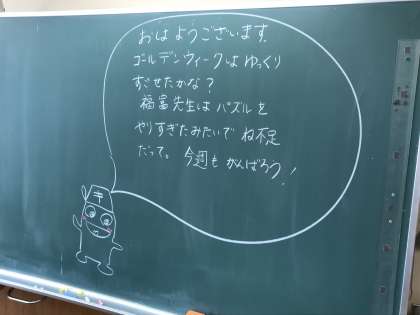 おはようございます
ゴールデンウィークはゆっくり
すごせたかな？
福富先生はパズルを
やりすぎたみたいでね不足
だって。今週もがんばろう！
キ